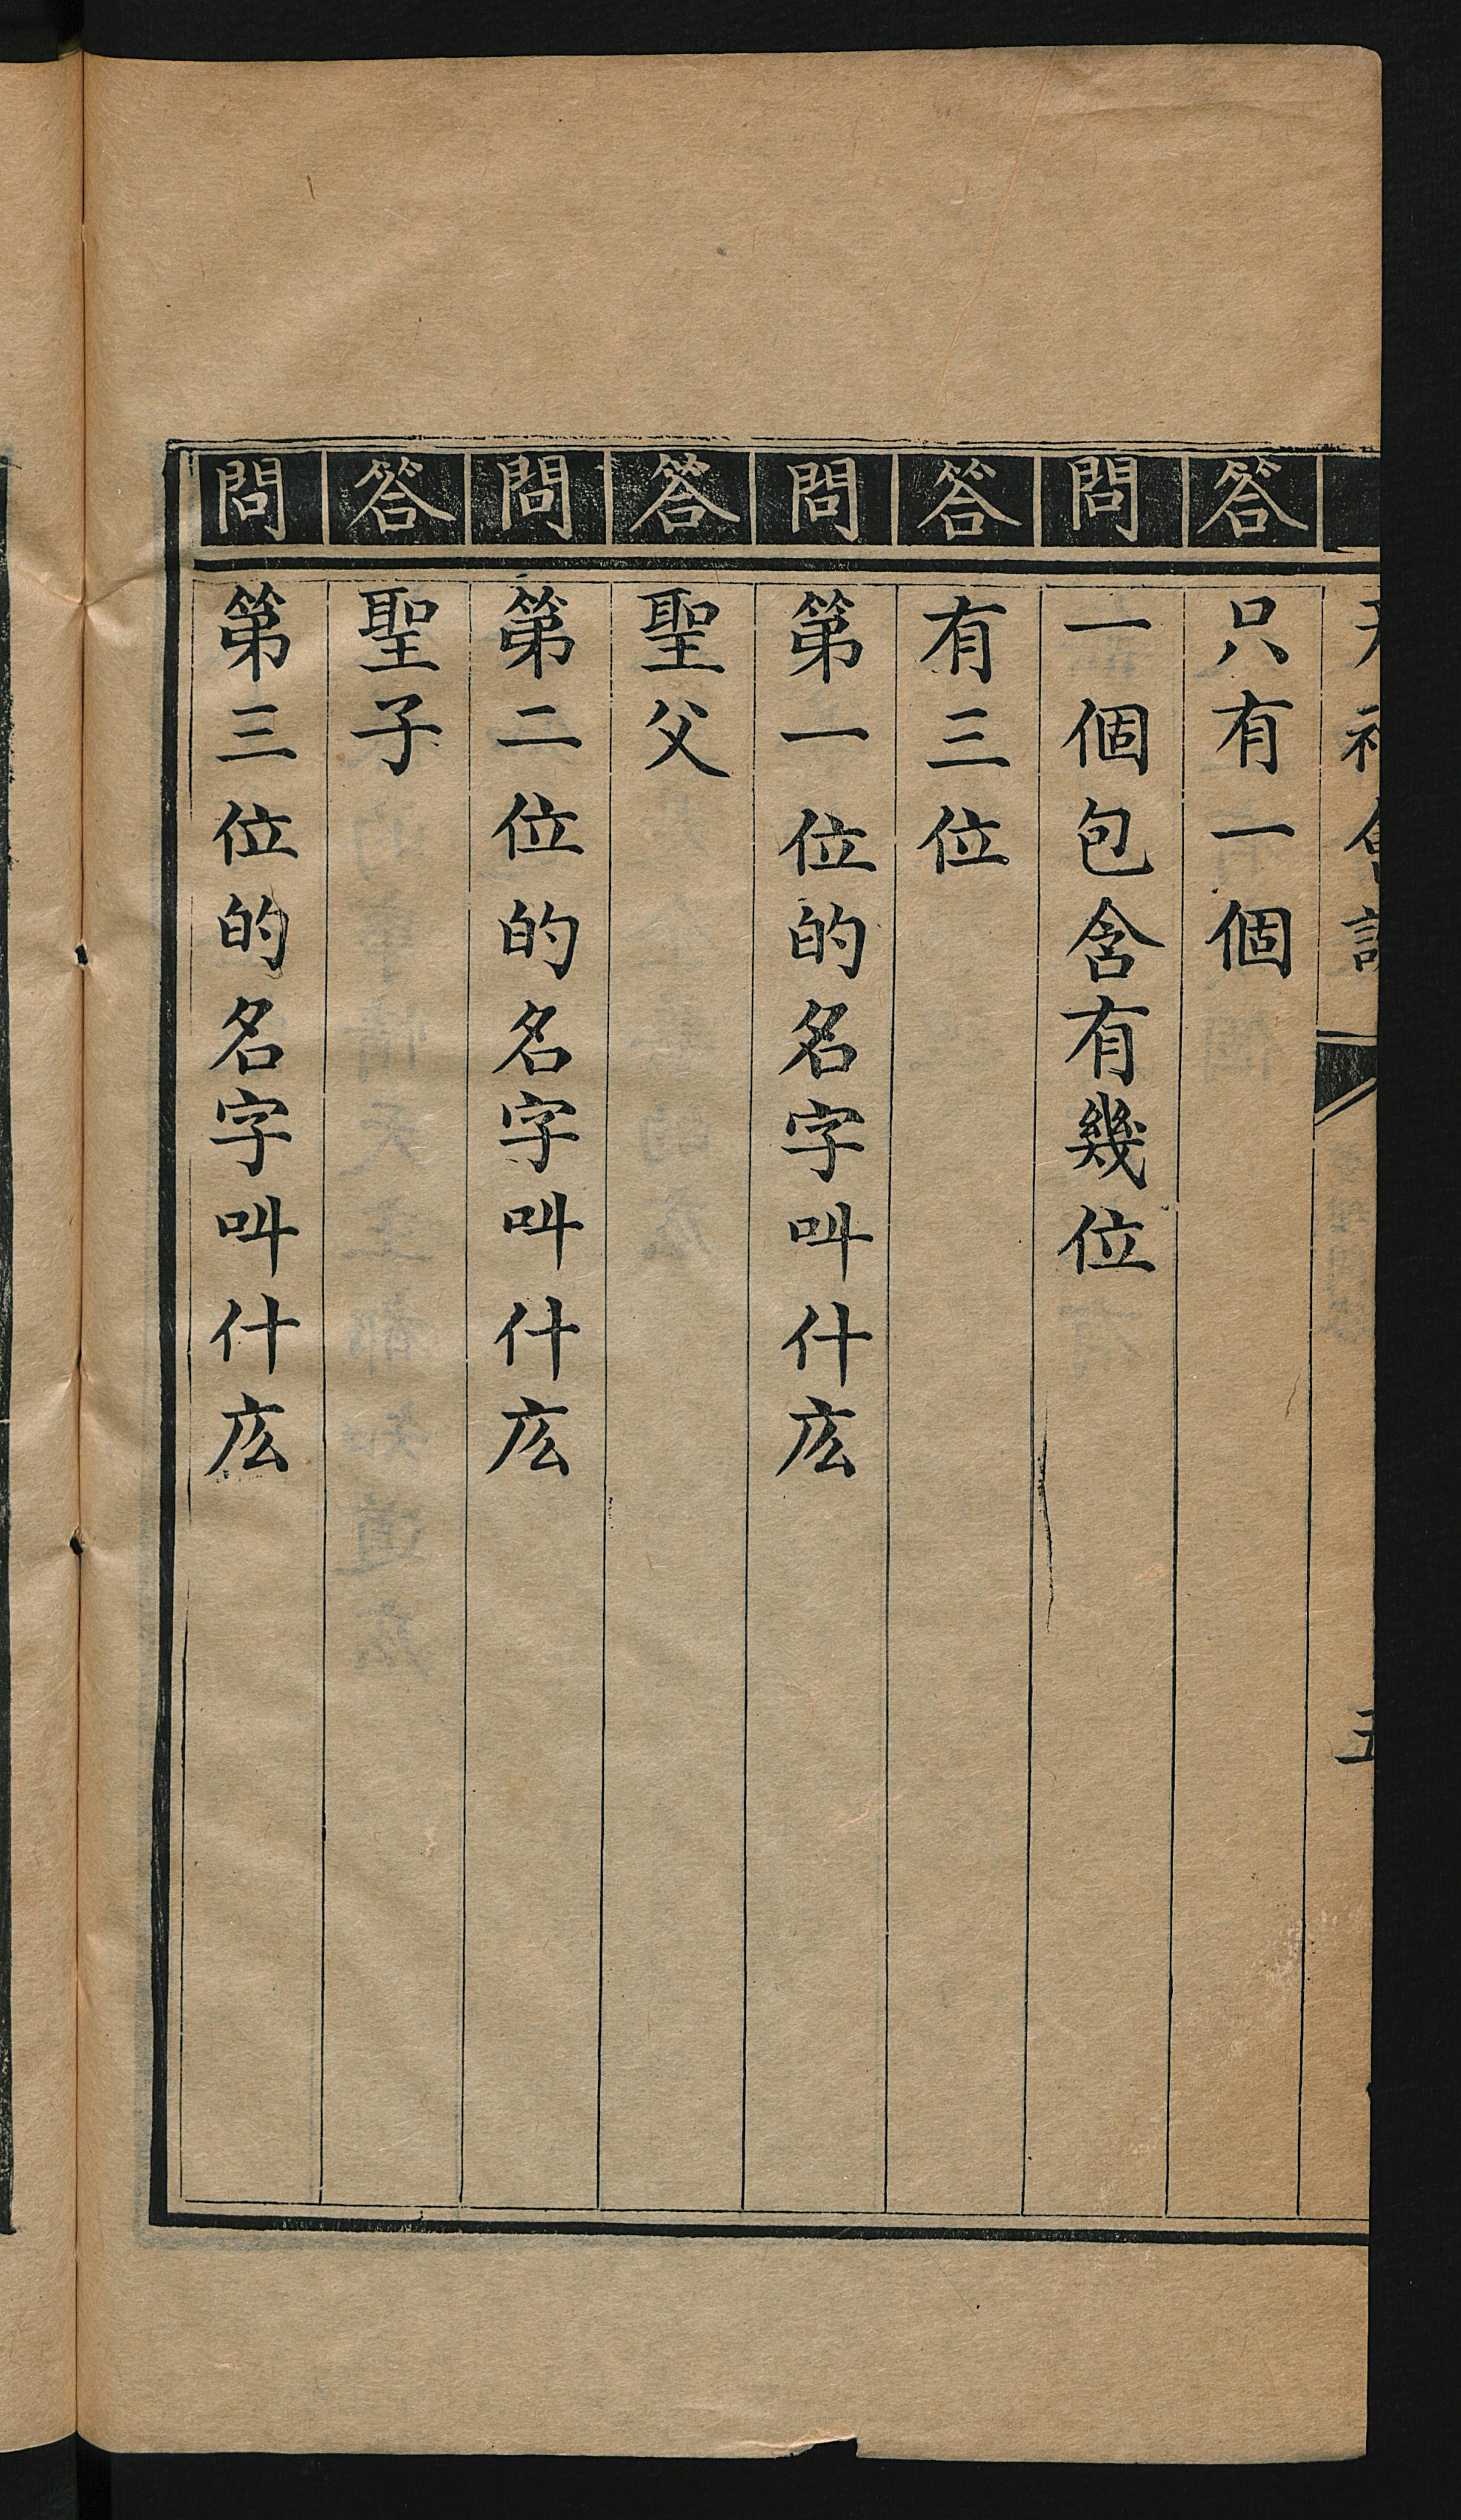 答 只有一個
問 一個包含有幾位
答 有三位
問 第一位的名字叫什庅
答 聖父
問 第二位的名字叫什庅
答 聖子
問 第三位的名字叫什庅